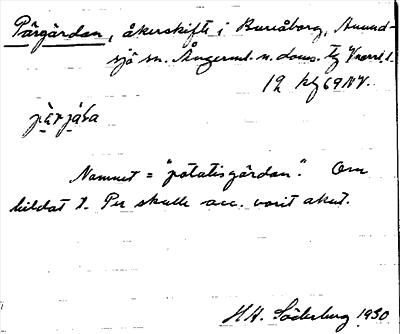 Pärgårdan, åkerskifte i Bureåborg, Anund-
sjö sn. Ångerml. n. doms.
12 kf 69 NV.
pä̀rjáɽa
Namnet = "potatisgårdan". Om
bildat t. Per skulle acc. varit akut.
H.H. Söderberg 1930